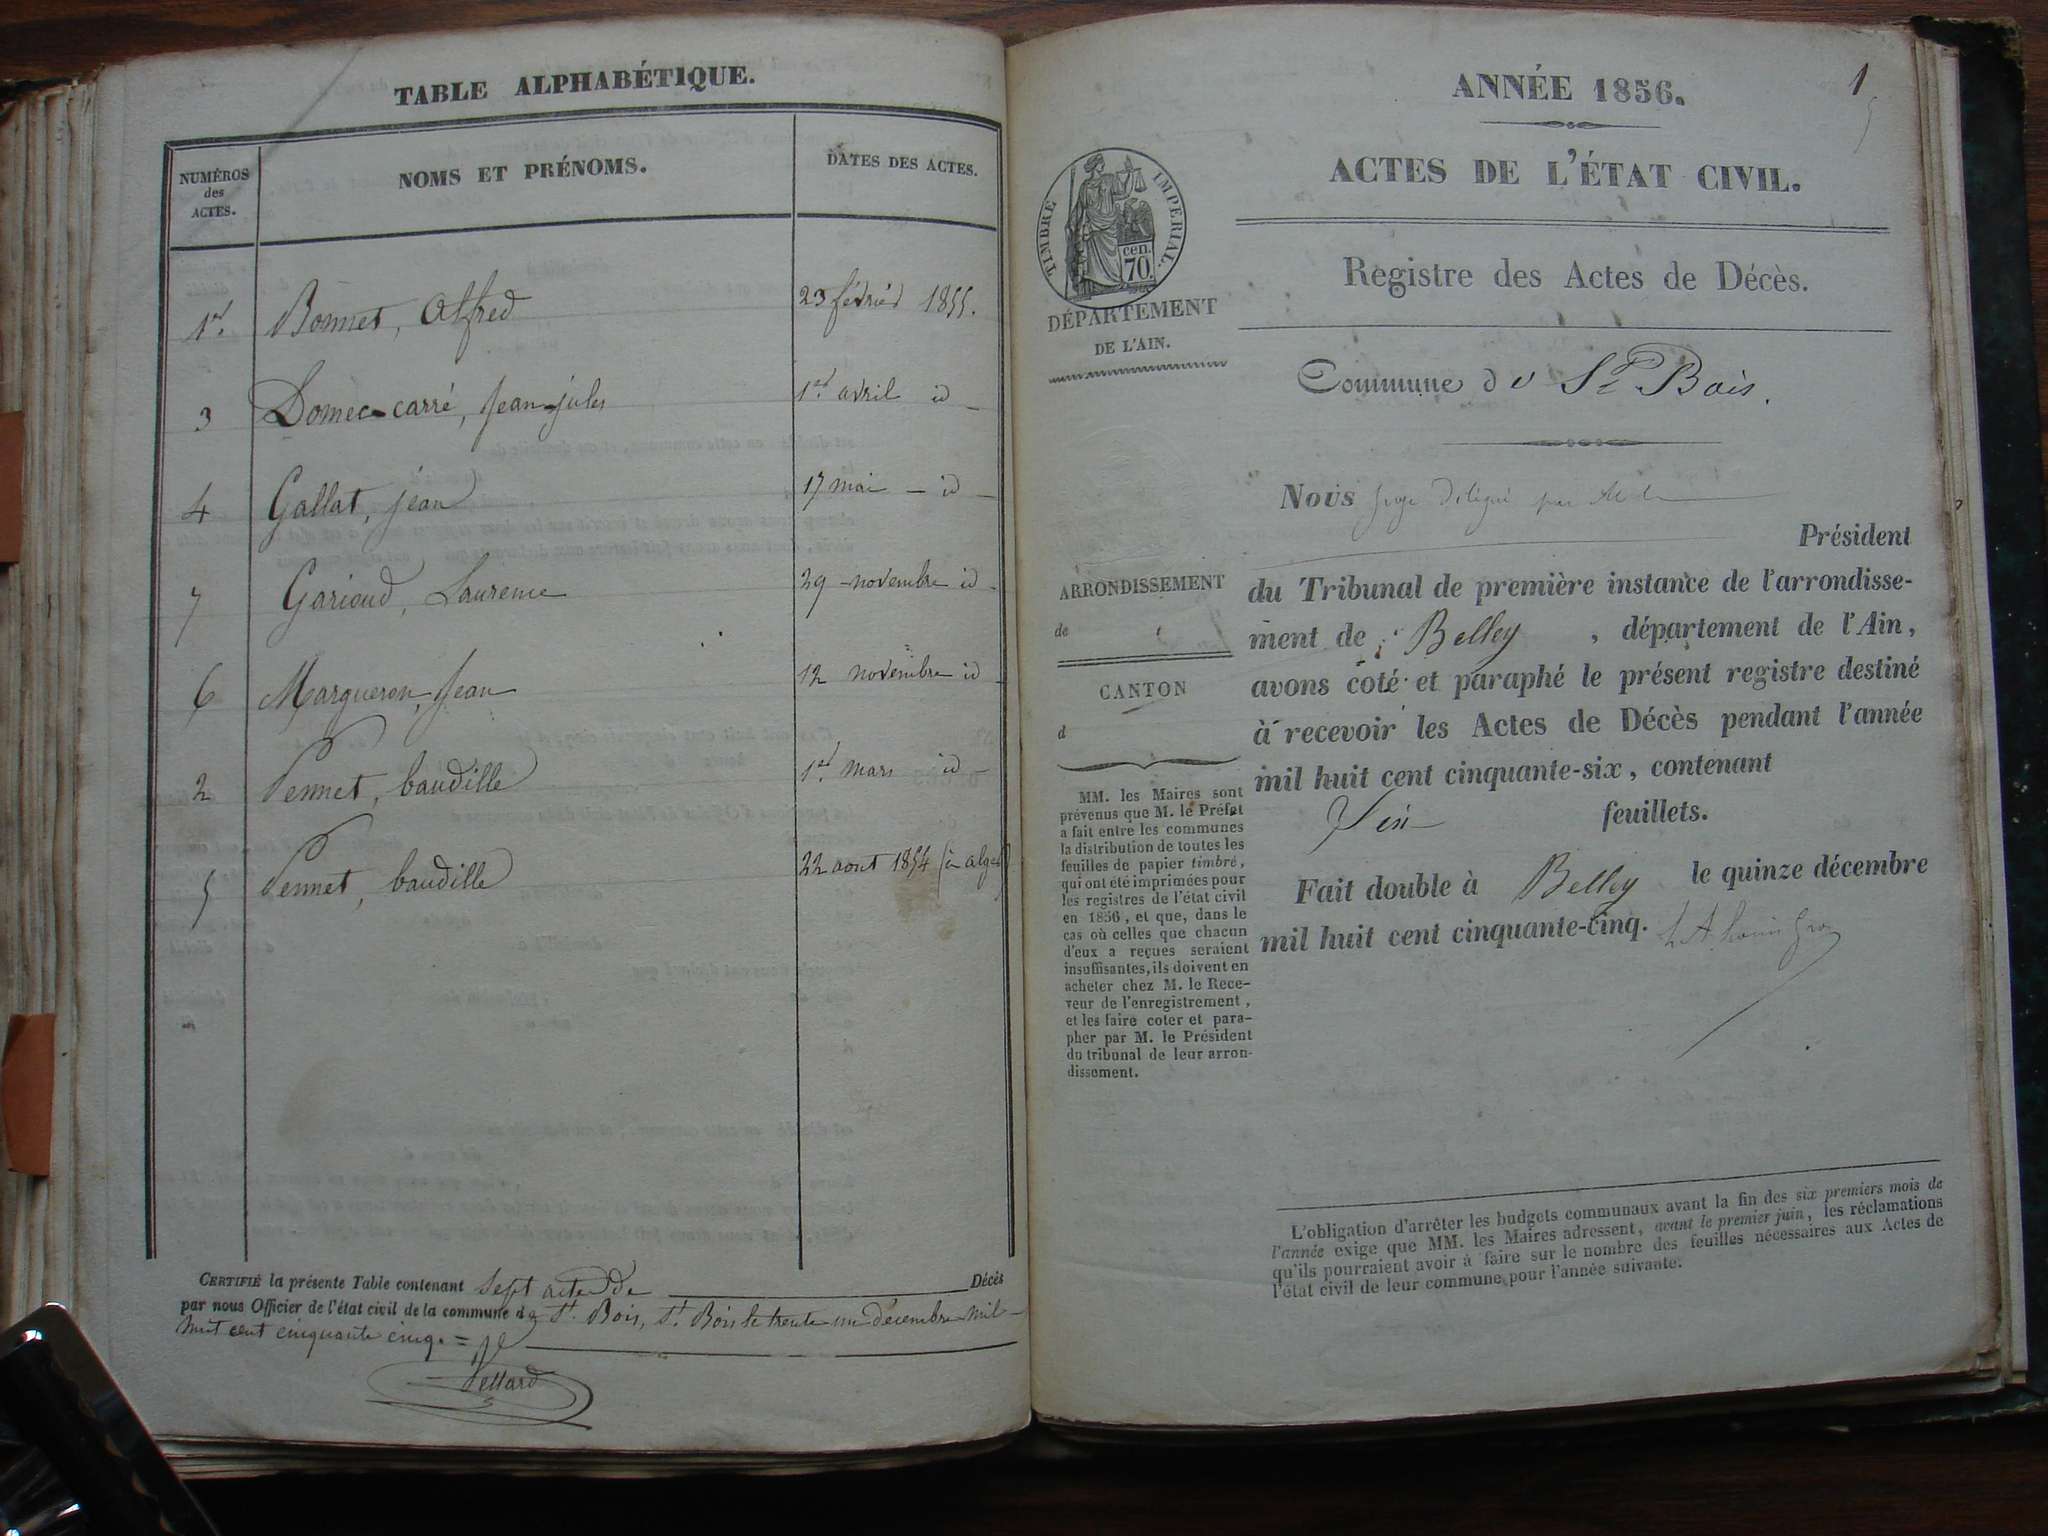 TABLE ALPHABÉTIQUE.
NUMÉROS des ACTES. NOMS ET PRÉNOMS. DATES DES ACTES.
1er. Bonnet, Alfred 23 février 1855.
3 Domec-carré, Jean-jules 1er avril id
4 Gallat, jean 17 mai - id -
7 Garioud, Laurence 29 - novembre id -
6 Margueron, Jean 12 novembre id -
2 Pennet, baudille 1er mars id -
5 Pennet, baudille 22 aout 1854 (à alger)
CERTIFIÉ la présente Table contenant sept actes de Décès
par nous Officier de l'état civil de la commune de St. Bois, St. Bois le trente un décembre mil
huit cent cinquante cinq. =
Pettard
1
ANNÉE 1856.
ACTES DE L'ÉTAT CIVIL.
TIMBRE IMPÉRIAL.
cen. 70.
Registre des Actes de Décès.
DÉPARTEMENT
DE L'AIN.
Commune de St Bois.
Nous Juge délégué par M. le
Président
du Tribunal de première instance de l'arrondisse-
ment de Belley, département de l'Ain,
avons coté et paraphé le présent registre destiné
à recevoir les Actes de Décès pendant l'année
mil huit cent cinquante-six, contenant
feuillets.
Fait double à Belley le quinze décembre
mil huit cent cinquante-cinq.
ARRONDISSEMENT
de
CANTON
d
MM. les Maires sont
prévenus que M. le Préfet
a fait entre les communes
la distribution de toutes les
feuilles de papier timbré,
qui ont été imprimées pour
les registres de l'état civil
en 1856, et que, dans le
cas où celles que chacun
d'eux a reçues seraient
insuffisantes, ils doivent en
acheter chez M. le Rece-
veur de l'enregistrement,
et les faire coter et para-
pher par M. le Président
du tribunal de leur arron-
dissement.
L'obligation d'arrêter les budgets communaux avant la fin des six premiers mois de
l'année exige que MM. les Maires adressent, avant le premier juin, les réclamations
qu'ils pourraient avoir à faire sur le nombre des feuilles nécessaires aux Actes de
l'état civil de leur commune pour l'année suivante.